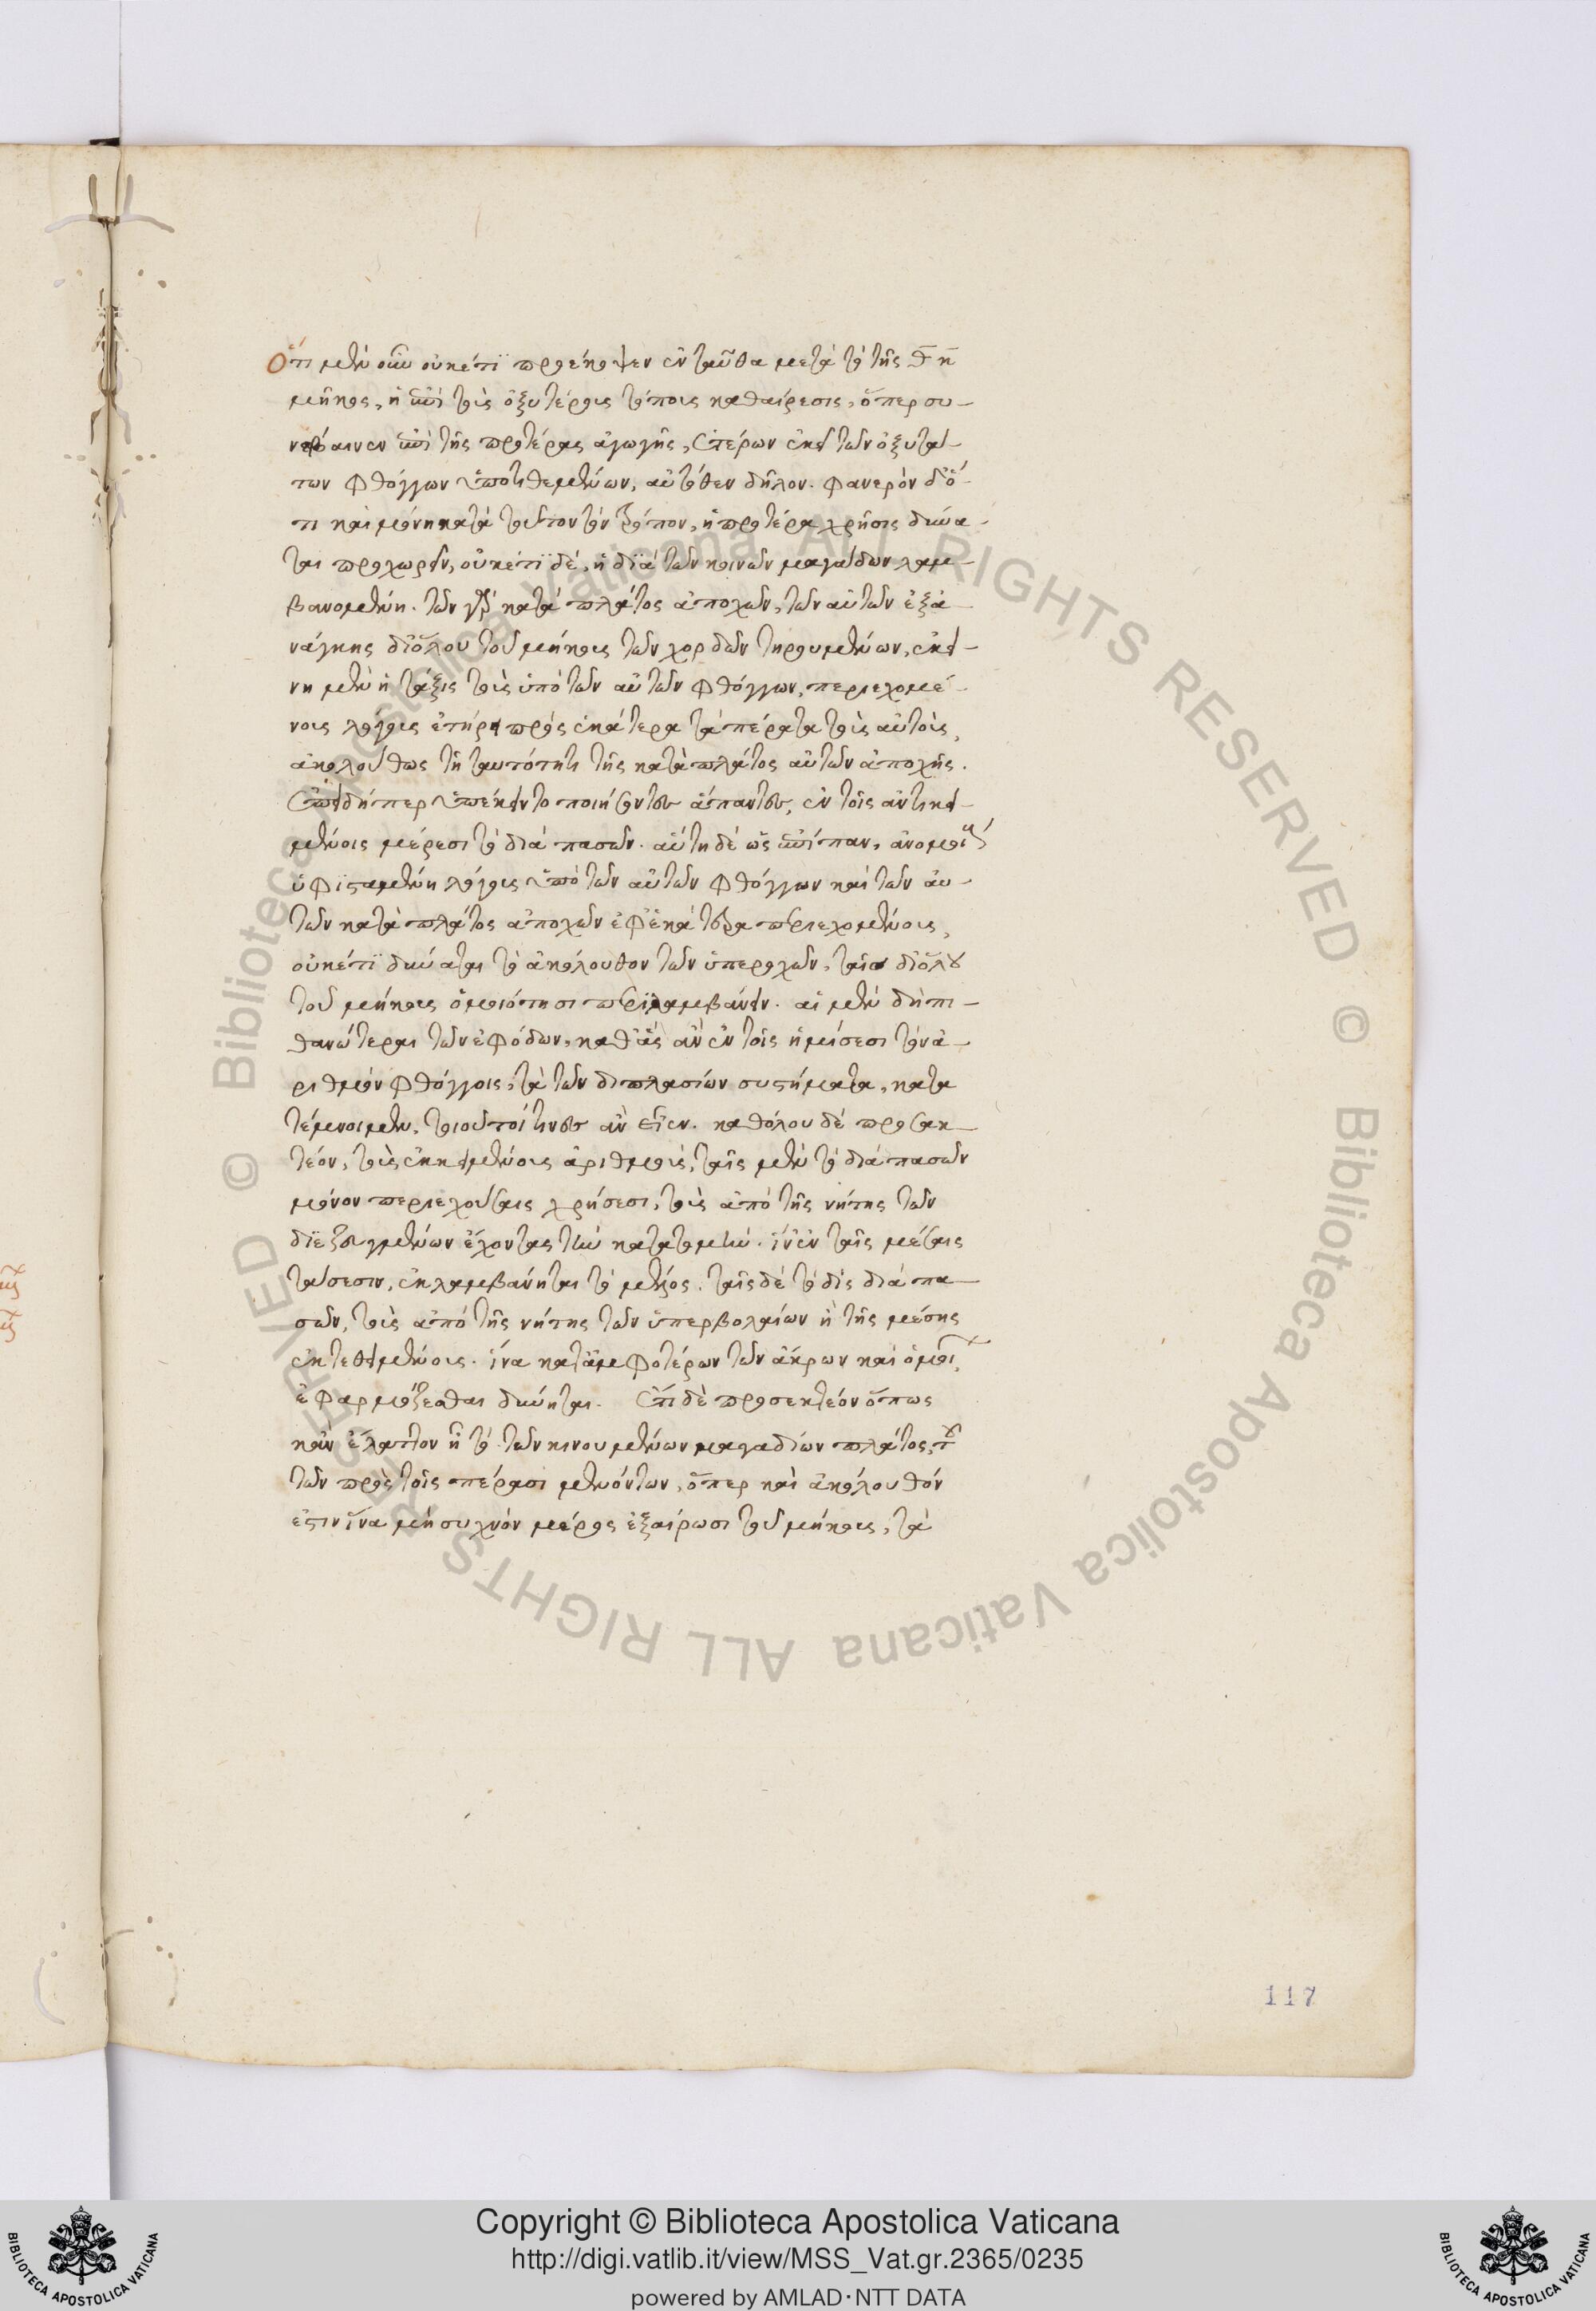 Ὅτι μὲν οὖν οὐκέτι προέκοψεν ἐνταῦθα μετὰ τὸ τῆς θη
μῆκος, ἡ ἐπὶ τοῖς ὀξυτέροις τόποις καθαίρεσις, ὅπερ συ-
νέβαινεν ἐπὶ τῆς προτέρας ἀγωγῆς, ἑτέρων ἐκεῖ τῶν ὀξυτά-
των φθόγγων ὑποτιθεμένων, αὐτόθεν δῆλον. φανερὸν δ' ὅ-
τι καὶ μόνη κατὰ τοῦτον τὸν τρόπον, ἡ προτέρα χρῆσις δύνα-
ται προχωρεῖν, οὐκέτι δὲ, ἡ διὰ τῶν κοινῶν μαγάδων λαμ-
βανομένη. τῶν γὰρ κατὰ πλάτος ἀποχῶν, τῶν αὐτῶν ἐξα-
νάγκης διόλου τοῦ μήκους τῶν χορδῶν τηρουμένων, ἐκεί-
νη μὲν ἡ τάξις τοῖς ὑπὸ τῶν αὐτῶν φθόγγων, περιεχομέ-
νοις λόγοις ἐτήρει πρὸς ἑκάτερα τὰ πέρατα τοῖς αὐτοῖς,
ἀκολούθως τῇ ταυτότητι τῆς κατὰ πλάτος αὐτῶν ἀποχῆς.
ἐπειδήπερ ὑπέκειντο ποιήσοντες ἅπαντες, ἐν τοῖς ἀντικει-
μένοις μέρεσι τὸ διὰ πασῶν. αὕτη δὲ ὡς ἐπίπαν, ἀνομοί
ὑφισταμένη λόγοις ὑπὸ τῶν αὐτῶν φθόγγων καὶ τῶν αὐ-
τῶν κατὰ πλάτος ἀποχῶν ἐφ' ἑκάτερα περιεχομένοις,
οὐκέτι δύναται τὸ ἀκόλουθον τῶν ὑπεροχῶν, ταῖς διόλου
τοῦ μήκους ὁμοιότησι περιλαμβάνειν. αἱ μὲν δὴ πι-
θανώτεραι τῶν ἐφόδων, καθ' ἃς ἂν ἐν τοῖς ἡμίσεσι τὸν ἀ-
ριθμὸν φθόγγοις, τὰ τῶν διπλασίων συστήματα, κατα
τέμνοιμεν, τοιοῦτοί τινες ἂν εἶεν. καθόλου δὲ προσακ-
τέον, τοῖς ἐκκειμένοις ἀριθμοῖς, ταῖς μὲν τὸ διὰ πασῶν
μόνον περιεχούσαις χρήσεσι, τοῖς ἀπὸ τῆς νήτης τῶν
διεζευγμένων ἔχοντας τὴν κατατομήν. ἵν' ἐν ταῖς μέσαις
τάσεσιν, ἐκλαμβάνηται τὸ μέλος. ταῖς δὲ τὸ δὶς διὰ πα-
σῶν, τοῖς ἀπὸ τῆς νήτης τῶν ὑπερβολαίων ἢ τῆς μέσης
ἐκτεθειμένοις. ἵνα κατ' ἀμφοτέρων τῶν ἄκρων καὶ ὁμοί
ἐφαρμόζεσθαι δύνηται. Ἔτι δὲ προσεκτέον ὅπως
κἂν ἔλαττον ᾖ τὸ τῶν κινουμένων μαγαδίων πλάτος, τοῦ
τῶν πρὸς τοῖς πέρασι μενόντων, ὅπερ καὶ ἀκόλουθόν
ἐστιν ἵνα μὴ συχνὸν μέρος ἐξαίρωσι τοῦ μήκους, τὰ
117
Copyright © Biblioteca Apostolica Vaticana
http://digi.vatlib.it/view/MSS_Vat.gr.2365/0235
powered by AMLAD·NTT DATA